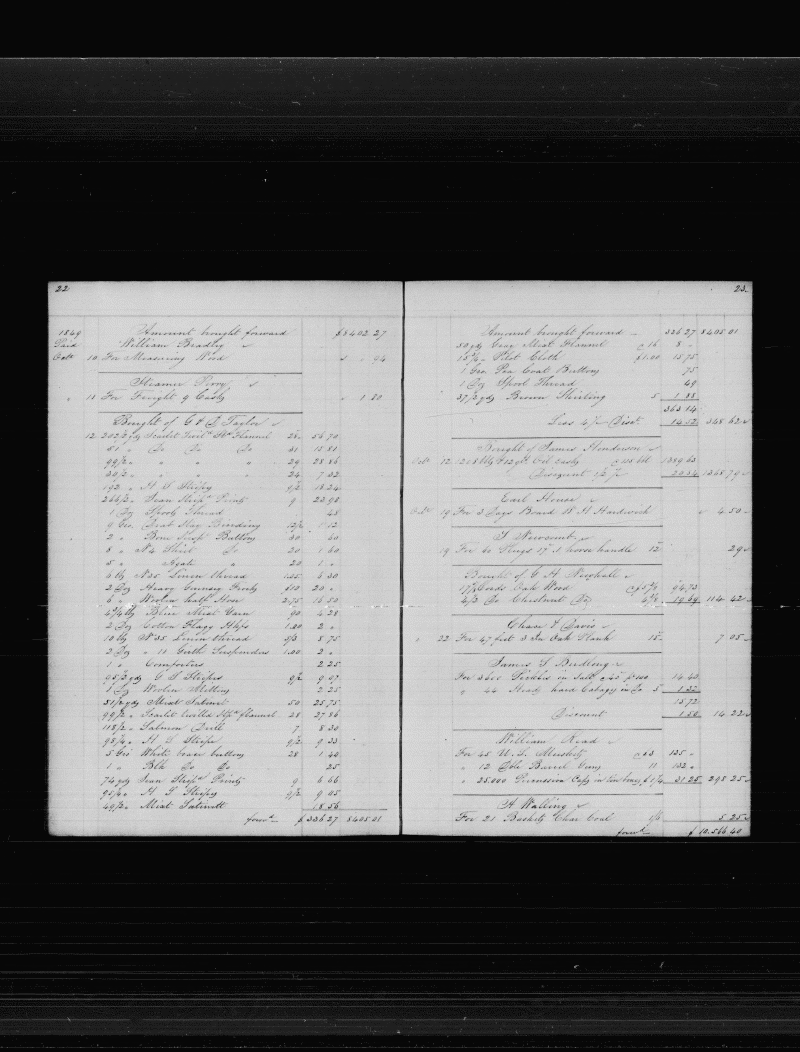 22
1849 Amount brought forward $8402 27
Paid William Bradley
Octr 10 For Measuring Wood " . 94
Steamer Perry
" 11 For Freight 9 Casks " 1 80
Bought of G & Taylor
12 202/2 yds Scarlet Flannel 28 56 70
51 " Do Do Do 31 15 81
99/2 " " " " 29 28 86
" " " 24 7 32
192 " H S Stripes 9/2 18 24
266/2 " Jean Prints 9 23 98
1 Doz Spool Thread 48
9 Gro. Drab Stay Binding 12/2 1 12
2 " Bone Susp Buttons 30 60
8 " No 4 Shirt Do 20 1 60
5 " Agate " 20 1 "
6 lb No 35 Linen thread 1.05 6 30
2 Doz Heavy Guernsey Frocks $10 20 "
6 " Woolen half Hose 2.75 16 50
4 3/4 lb Blue Mixt Yarn 90 4 28
2 Doz Cotton Flagg Hkfs 1.00 2 "
10 lb No 35 Linen thread 8 75
2 Doz " 11 Guth Suspenders 1.00 2 "
1 " Comforters 2 25
95/2 yds G S Stripes 9/2 9 07
1 Doz Woolen Mittens 2 25
51/2 yds Mixt Satinet 50 25 75
99/2 " Scarlet twilld flannel 28 27 86
118/2 " Salmon Drill 7 8 30
98/4 " H S Stripe 9/2 9 33
5 Gro White coat buttons 28 1 40
1 " Blk Do Do 25
74 yds Jean Prints 9 6 66
95/4 " H S Stripes 9/2 9 05
" Mixt Satinett 18 56
forwd $ 336 27 8405 01
23
Amount brought forward 336 27 8405.01
50 yds Gray Mixt Flannel @ 16 8 "
15 3/4 " Pilot Cloth $1.00 15 75
1 Gro. Pea Coat Buttons 75
1 Doz Spool Thread 49
37/2 yds Brown Shirting 5 1.88
363 14
Less 4 % Disct 14.52 348 62
Bought of James Henderson
Octr 12 Oil Casks 1389 63
Discount 1/2 % 20.84 1368 79
Earl House
Octr 19 For 3 Days Board H Hardwick " 4.50
S Newcomb
19 For 60 Plugs horse handle 12 29
Bought of G H Newhall
Cords Oak Wood 94.73
Do Chestnut Do 19 69 114 42
Chase & Davis
" 22 For 47 feet 3 In Oak Plank 15 7 05
James S Budlong
For 3600 Pickles in Salt @ 40 14.40
" 44 Heads hard Cabbages in Do 3 1.32
15.72
Discount 1.50 14.22
William Read
For 45 U.S. Muskets @ $3 135 "
" 12 Dble Barrel Guns 11 132 "
" 25.000 Percussion Caps in tin boxes $ 1 1/4 31 25 298 25
H Walling
For 21 Baskets Char Coal 1/6 5 25
forwd $ 10.566 40